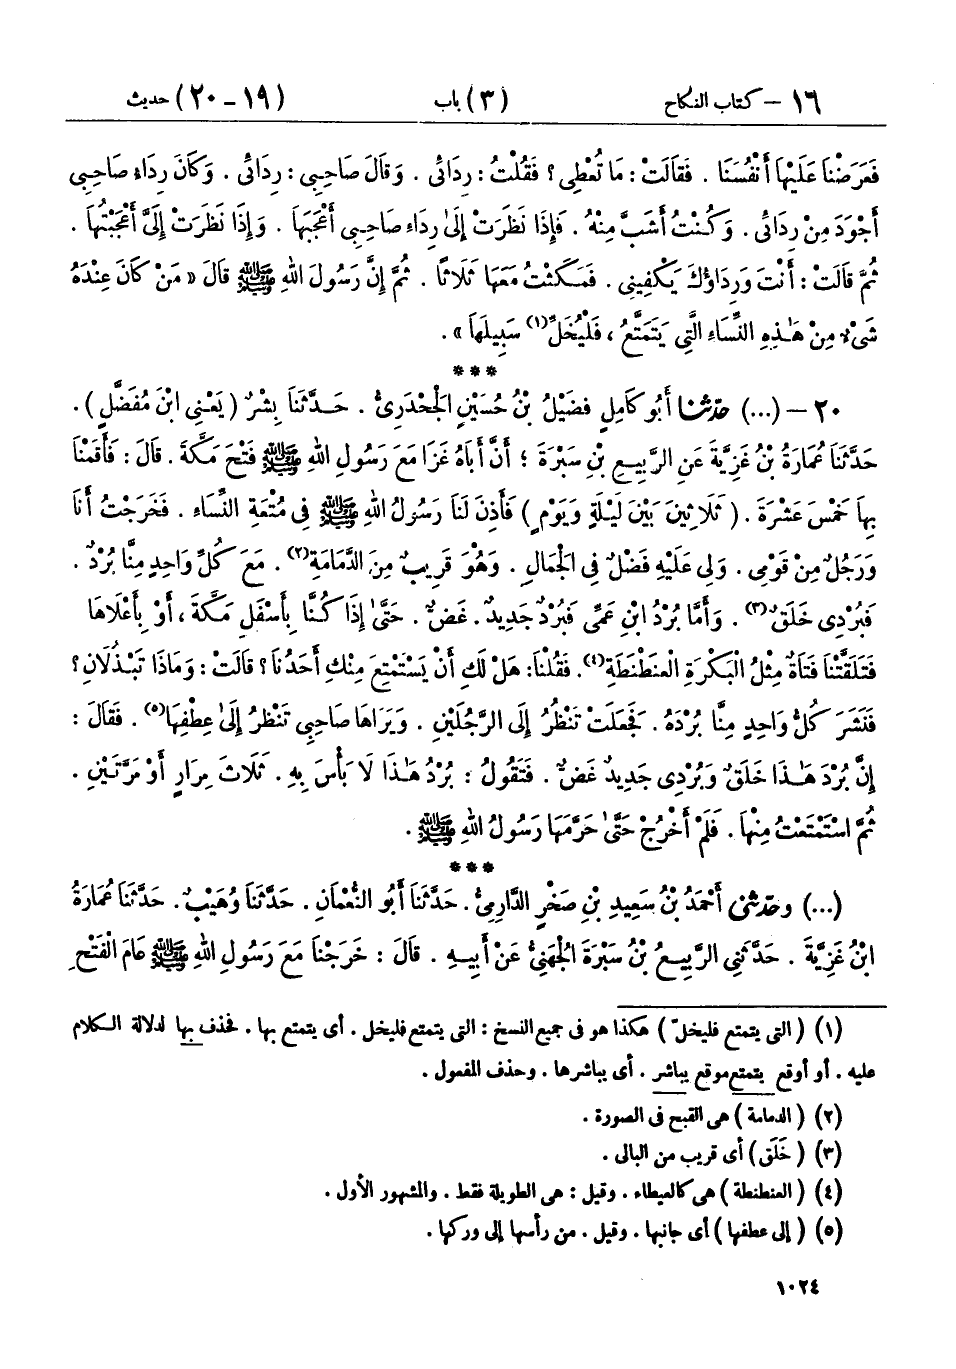 ١٦ – كتاب النكاح (٣) باب (١٩ – ٢٠) حديث
فَعَرَضْنَا عَلَيْهَا أَنْفُسَنَا . فَقَالَتْ : مَا تُعْطِي ؟ فَقُلْتُ : رِدَائِي . وَقَالَ صَاحِبِي : رِدَائِي . وَكَانَ رِدَاءُ صَاحِبِي
أَجْوَدَ مِنْ رِدَائِي . وَكُنْتُ أَشَبَّ مِنْهُ . فَإِذَا نَظَرَتْ إِلَىٰ رِدَاءِ صَاحِبِي أَعْجَبَهَا . وَإِذَا نَظَرَتْ إِلَيَّ أَعْجَبْتُهَا .
ثُمَّ قَالَتْ : أَنْتَ وَرِدَاؤُكَ يَكْفِينِي . فَمَكَثْتُ مَعَهَا ثَلَاثًا . ثُمَّ إِنَّ رَسُولَ اللهِ ﷺ قَالَ « مَنْ كَانَ عِنْدَهُ
شَيْءٌ مِنْ هَـٰذِهِ النِّسَاءِ الَّتِي يَتَمَتَّعُ ، فَلْيُخَلِّ(١) سَبِيلَهَا » .
***
٢٠ – (...) حدثنا أَبُو كَامِلٍ فُضَيْلُ بْنُ حُسَيْنٍ الْجَحْدَرِيُّ . حَدَّثَنَا بِشْرٌ ( يَعْنِي ابْنَ مُفَضَّلٍ ) .
حَدَّثَنَا عُمَارَةُ بْنُ غَزِيَّةَ عَنِ الرَّبِيعِ بْنِ سَبْرَةَ ؛ أَنَّ أَبَاهُ غَزَا مَعَ رَسُولِ اللهِ ﷺ فَتْحَ مَكَّةَ . قَالَ : فَأَقَمْنَا
بِهَا خَمْسَ عَشْرَةَ . ( ثَلَاثِينَ بَيْنَ لَيْلَةٍ وَيَوْمٍ ) فَأَذِنَ لَنَا رَسُولُ اللهِ ﷺ فِي مُتْعَةِ النِّسَاءِ . فَخَرَجْتُ أَنَا
وَرَجُلٌ مِنْ قَوْمِي . وَلِي عَلَيْهِ فَضْلٌ فِي الْجَمَالِ . وَهُوَ قَرِيبٌ مِنَ الدَّمَامَةِ(٢) . مَعَ كُلِّ وَاحِدٍ مِنَّا بُرْدٌ .
فَبُرْدِي خَلَقٌ(٣) . وَأَمَّا بُرْدُ ابْنِ عَمِّي فَبُرْدٌ جَدِيدٌ . غَضٌّ . حَتَّىٰ إِذَا كُنَّا بِأَسْفَلِ مَكَّةَ ، أَوْ بِأَعْلَاهَا
فَتَلَقَّتْنَا فَتَاةٌ مِثْلُ الْبَكْرَةِ الْعَنَطْنَطَةِ(٤) . فَقُلْنَا : هَلْ لَكِ أَنْ يَسْتَمْتِعَ مِنْكِ أَحَدُنَا ؟ قَالَتْ : وَمَاذَا تَبْذُلَانِ ؟
فَنَشَرَ كُلُّ وَاحِدٍ مِنَّا بُرْدَهُ . فَجَعَلَتْ تَنْظُرُ إِلَى الرَّجُلَيْنِ . وَيَرَاهَا صَاحِبِي تَنْظُرُ إِلَىٰ عِطْفِهَا(٥) . فَقَالَ :
إِنَّ بُرْدَ هَـٰذَا خَلَقٌ وَبُرْدِي جَدِيدٌ غَضٌّ . فَتَقُولُ : بُرْدُ هَـٰذَا لَا بَأْسَ بِهِ . ثَلَاثَ مِرَارٍ أَوْ مَرَّتَيْنِ .
ثُمَّ اسْتَمْتَعْتُ مِنْهَا . فَلَمْ أَخْرُجْ حَتَّىٰ حَرَّمَهَا رَسُولُ اللهِ ﷺ .
***
(...) وحدثني أَحْمَدُ بْنُ سَعِيدِ بْنِ صَخْرٍ الدَّارِمِيُّ . حَدَّثَنَا أَبُو النُّعْمَانِ . حَدَّثَنَا وُهَيْبٌ . حَدَّثَنَا عُمَارَةُ
ابْنُ غَزِيَّةَ . حَدَّثَنِي الرَّبِيعُ بْنُ سَبْرَةَ الْجُهَنِيُّ عَنْ أَبِيهِ . قَالَ : خَرَجْنَا مَعَ رَسُولِ اللهِ ﷺ عَامَ الْفَتْحِ
(١) ( التي يتمتع فليخلّ ) هكذا هو في جميع النسخ : التي يتمتع فليخل . أي يتمتع بها . فحذف بها لدلالة الكلام
عليه . أو أوقع يتمتع موقع يباشر . أي يباشرها . وحذف المفعول .
(٢) ( الدمامة ) هي القبح في الصورة .
(٣) ( خَلَق ) أي قريب من البالي .
(٤) ( العنطنطة ) هي كالعيطاء . وقيل : هي الطويلة فقط . والمشهور الأول .
(٥) ( إلى عطفها ) أي جانبها . وقيل . من رأسها إلى وركها .
١٠٢٤